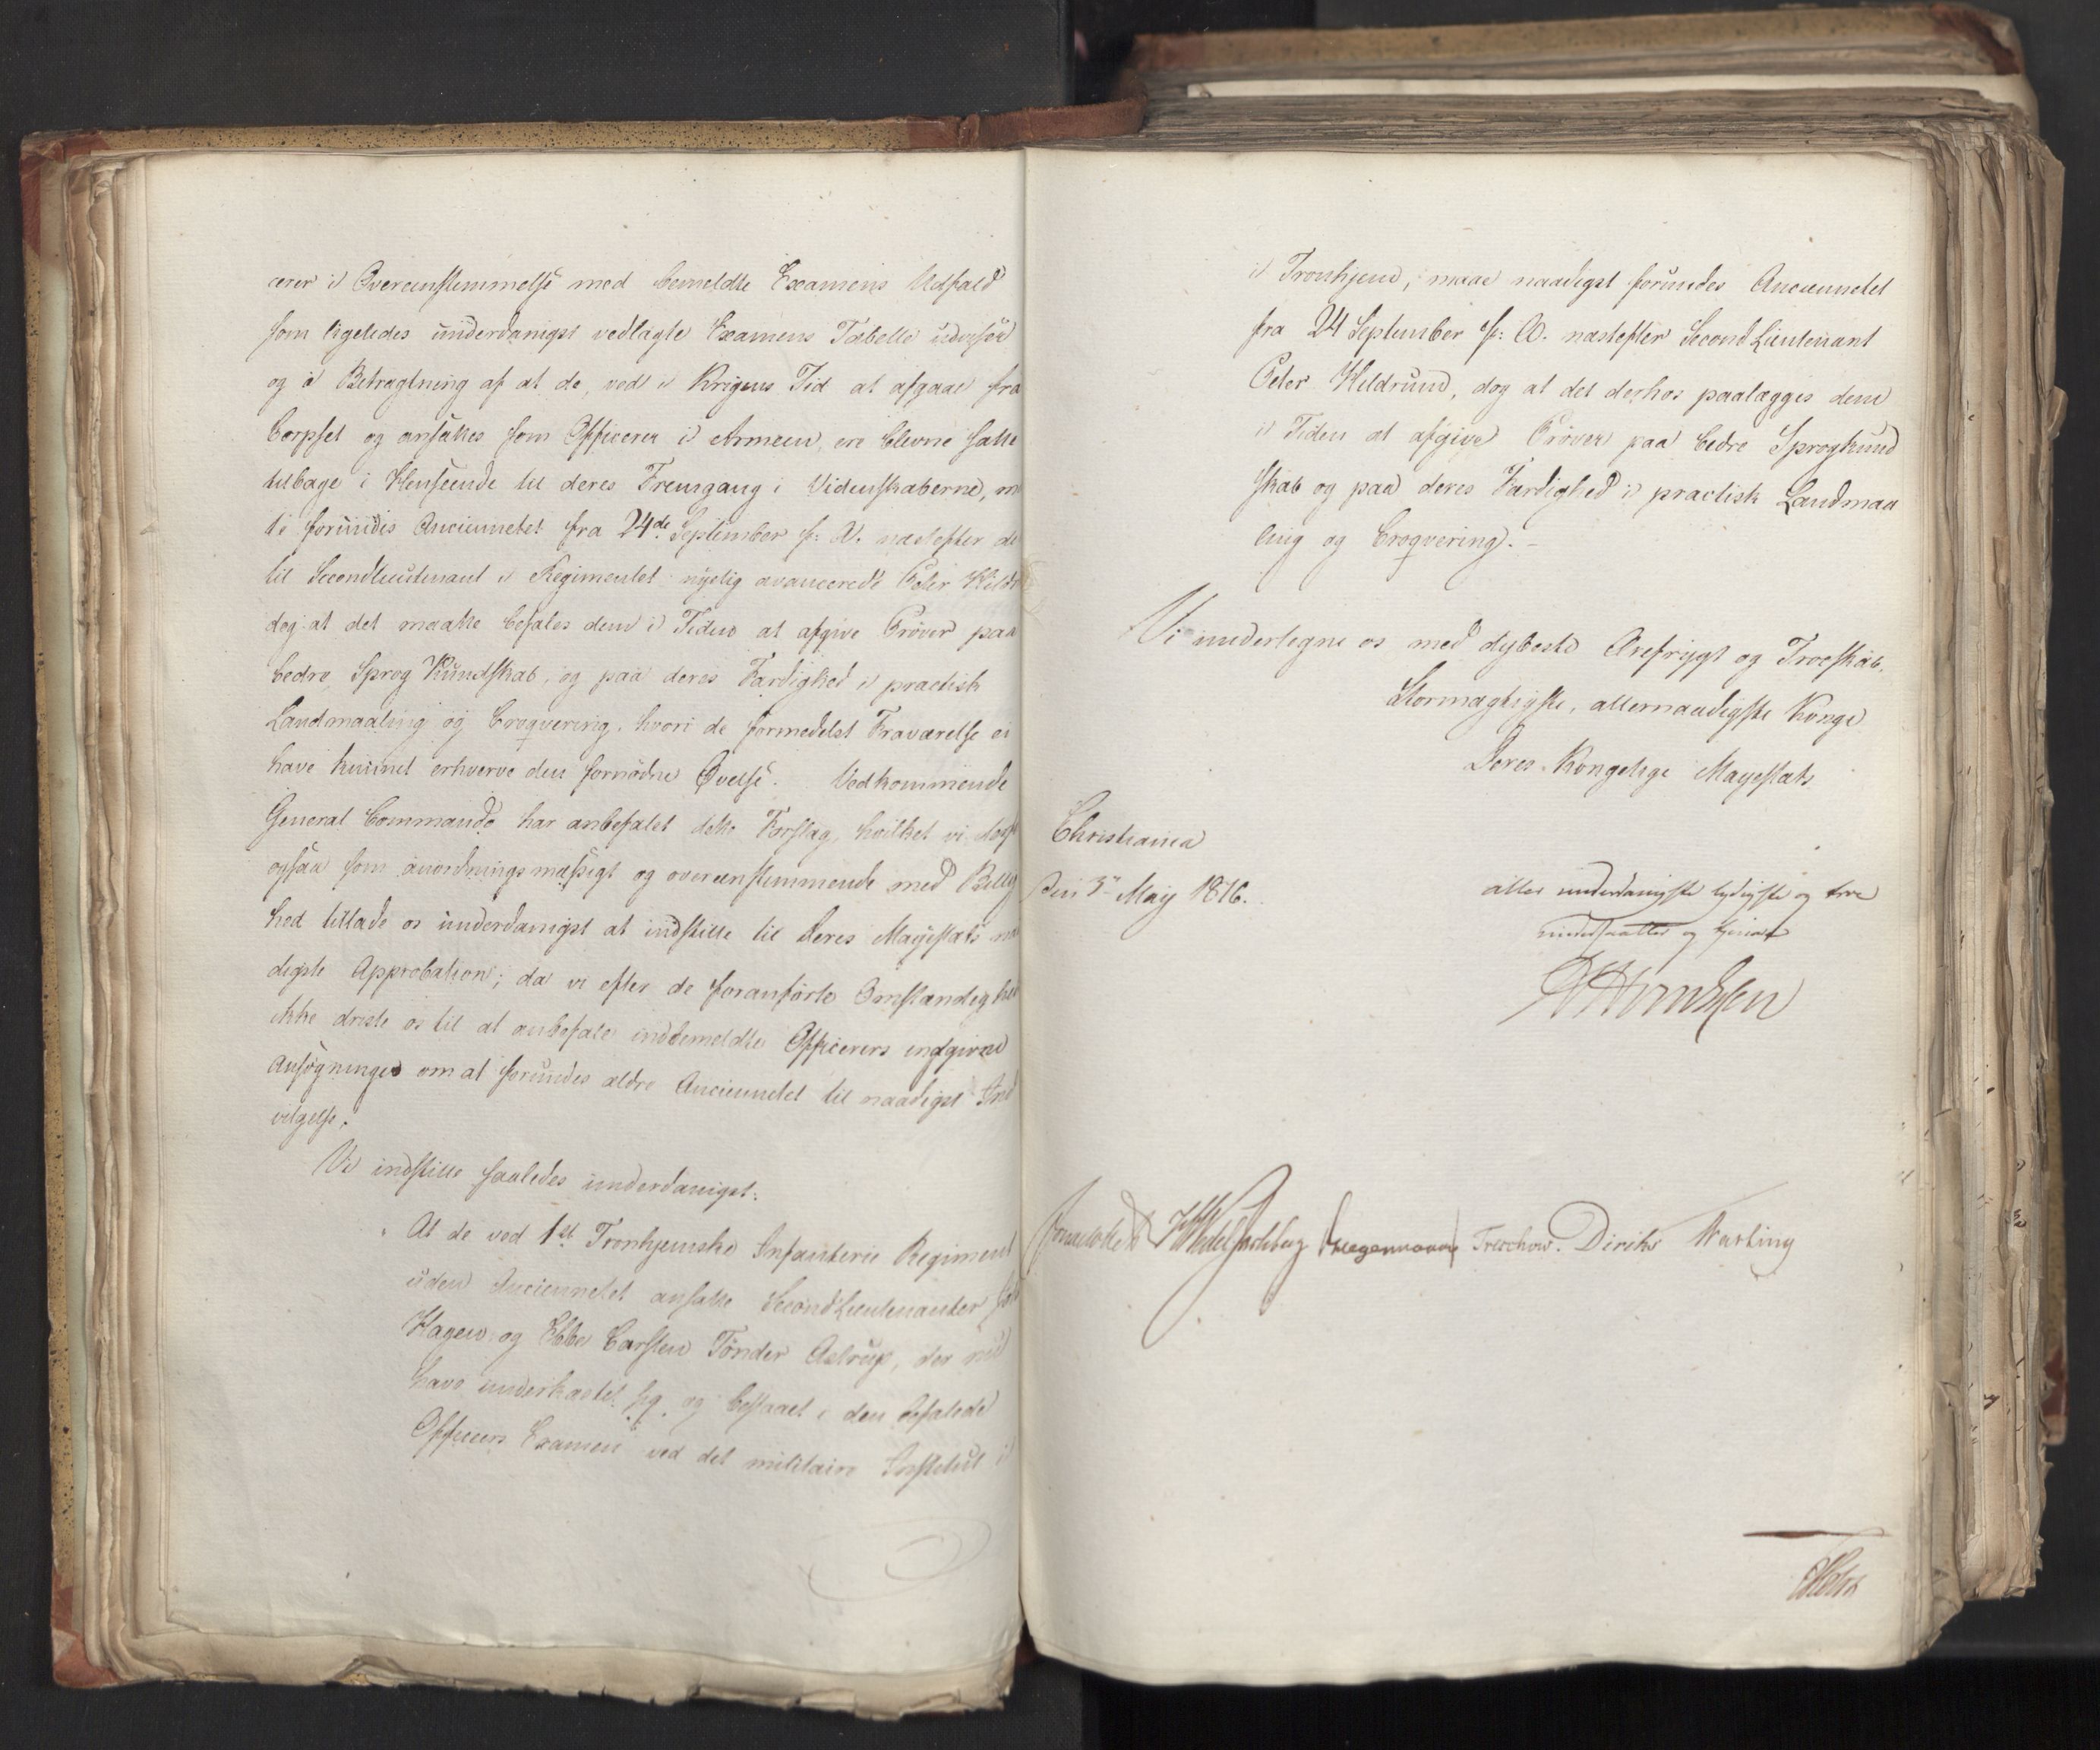 cerer i Overeensstemmelse med bemeldte Examens Udfald
som ligeledes underdanigst vedlagte Examens Tabelle udviser
og i Betragtning af at de, ved i Krigens Tid at afgaae fra
Corpset og ansættes som Officerer i Armeen, ere blevne satte
tilbage i Henseende til deres Fremgang i Videnskaberne,
forundes Anciennetet fra 24de September f: A. næstefter
til Secondlieutenant i Regimentet nyelig avancerede Peter
dog at det maatte befales dem i Tiden at afgive Prøver paa
bedre Sprog Kundskab, og paa deres Færdighed i practisk
Landmaaling og Croqvering, hvori de formedelst Fraværelse ei
have kunnet erhverve den fornødne Øvelse. Vedkommende
General Commando har anbefalet dette Forslag, hvilket vi
ogsaa som anordningsmæssigt og overeensstemmende med Billig
hed tillade os underdanigst at indstille til Deres Majestæts
digste Approbation; da vi efter de foranførte Omstændighe
ikke driste os til at anbefale indbemeldte Officerers indgivne
Ansøgninger om at forundes ældre Anciennetet til naadigst
vilgelse.
Vi indstille saaledes underdanigst:
At de ved 1st Tronhjemske Infanterie Regiment
uden Anciennetet ansatte SecondLieutenanter
Hagen og Ebbe Carsten Tønder Astrup, der nu
have underkastet sig og bestaaet i den befalede
Officeers Examen ved det militaire Institut i
i Tronhjem, maae naadigst forundes Anciennetet
fra 24 September f: A. næstefter Second Lieutenant
Peter Hildrum, dog at det derhos paalægges dem
i Tiden at afgive Prøver paa bedre Sprogkund
skab og paa deres Færdighed i practisk Landmaa
ling og Croqvering.
Vi undertegne os med dybeste Ærefrygt og Troeskab,
Stormægtigste, allernaadigste Konge
Deres Kongelige Majestæts
Christiania
den 3 May 1816.
aller underdanigste lydigste og troe
undersaatter og tjenere
Treschow. Diriks